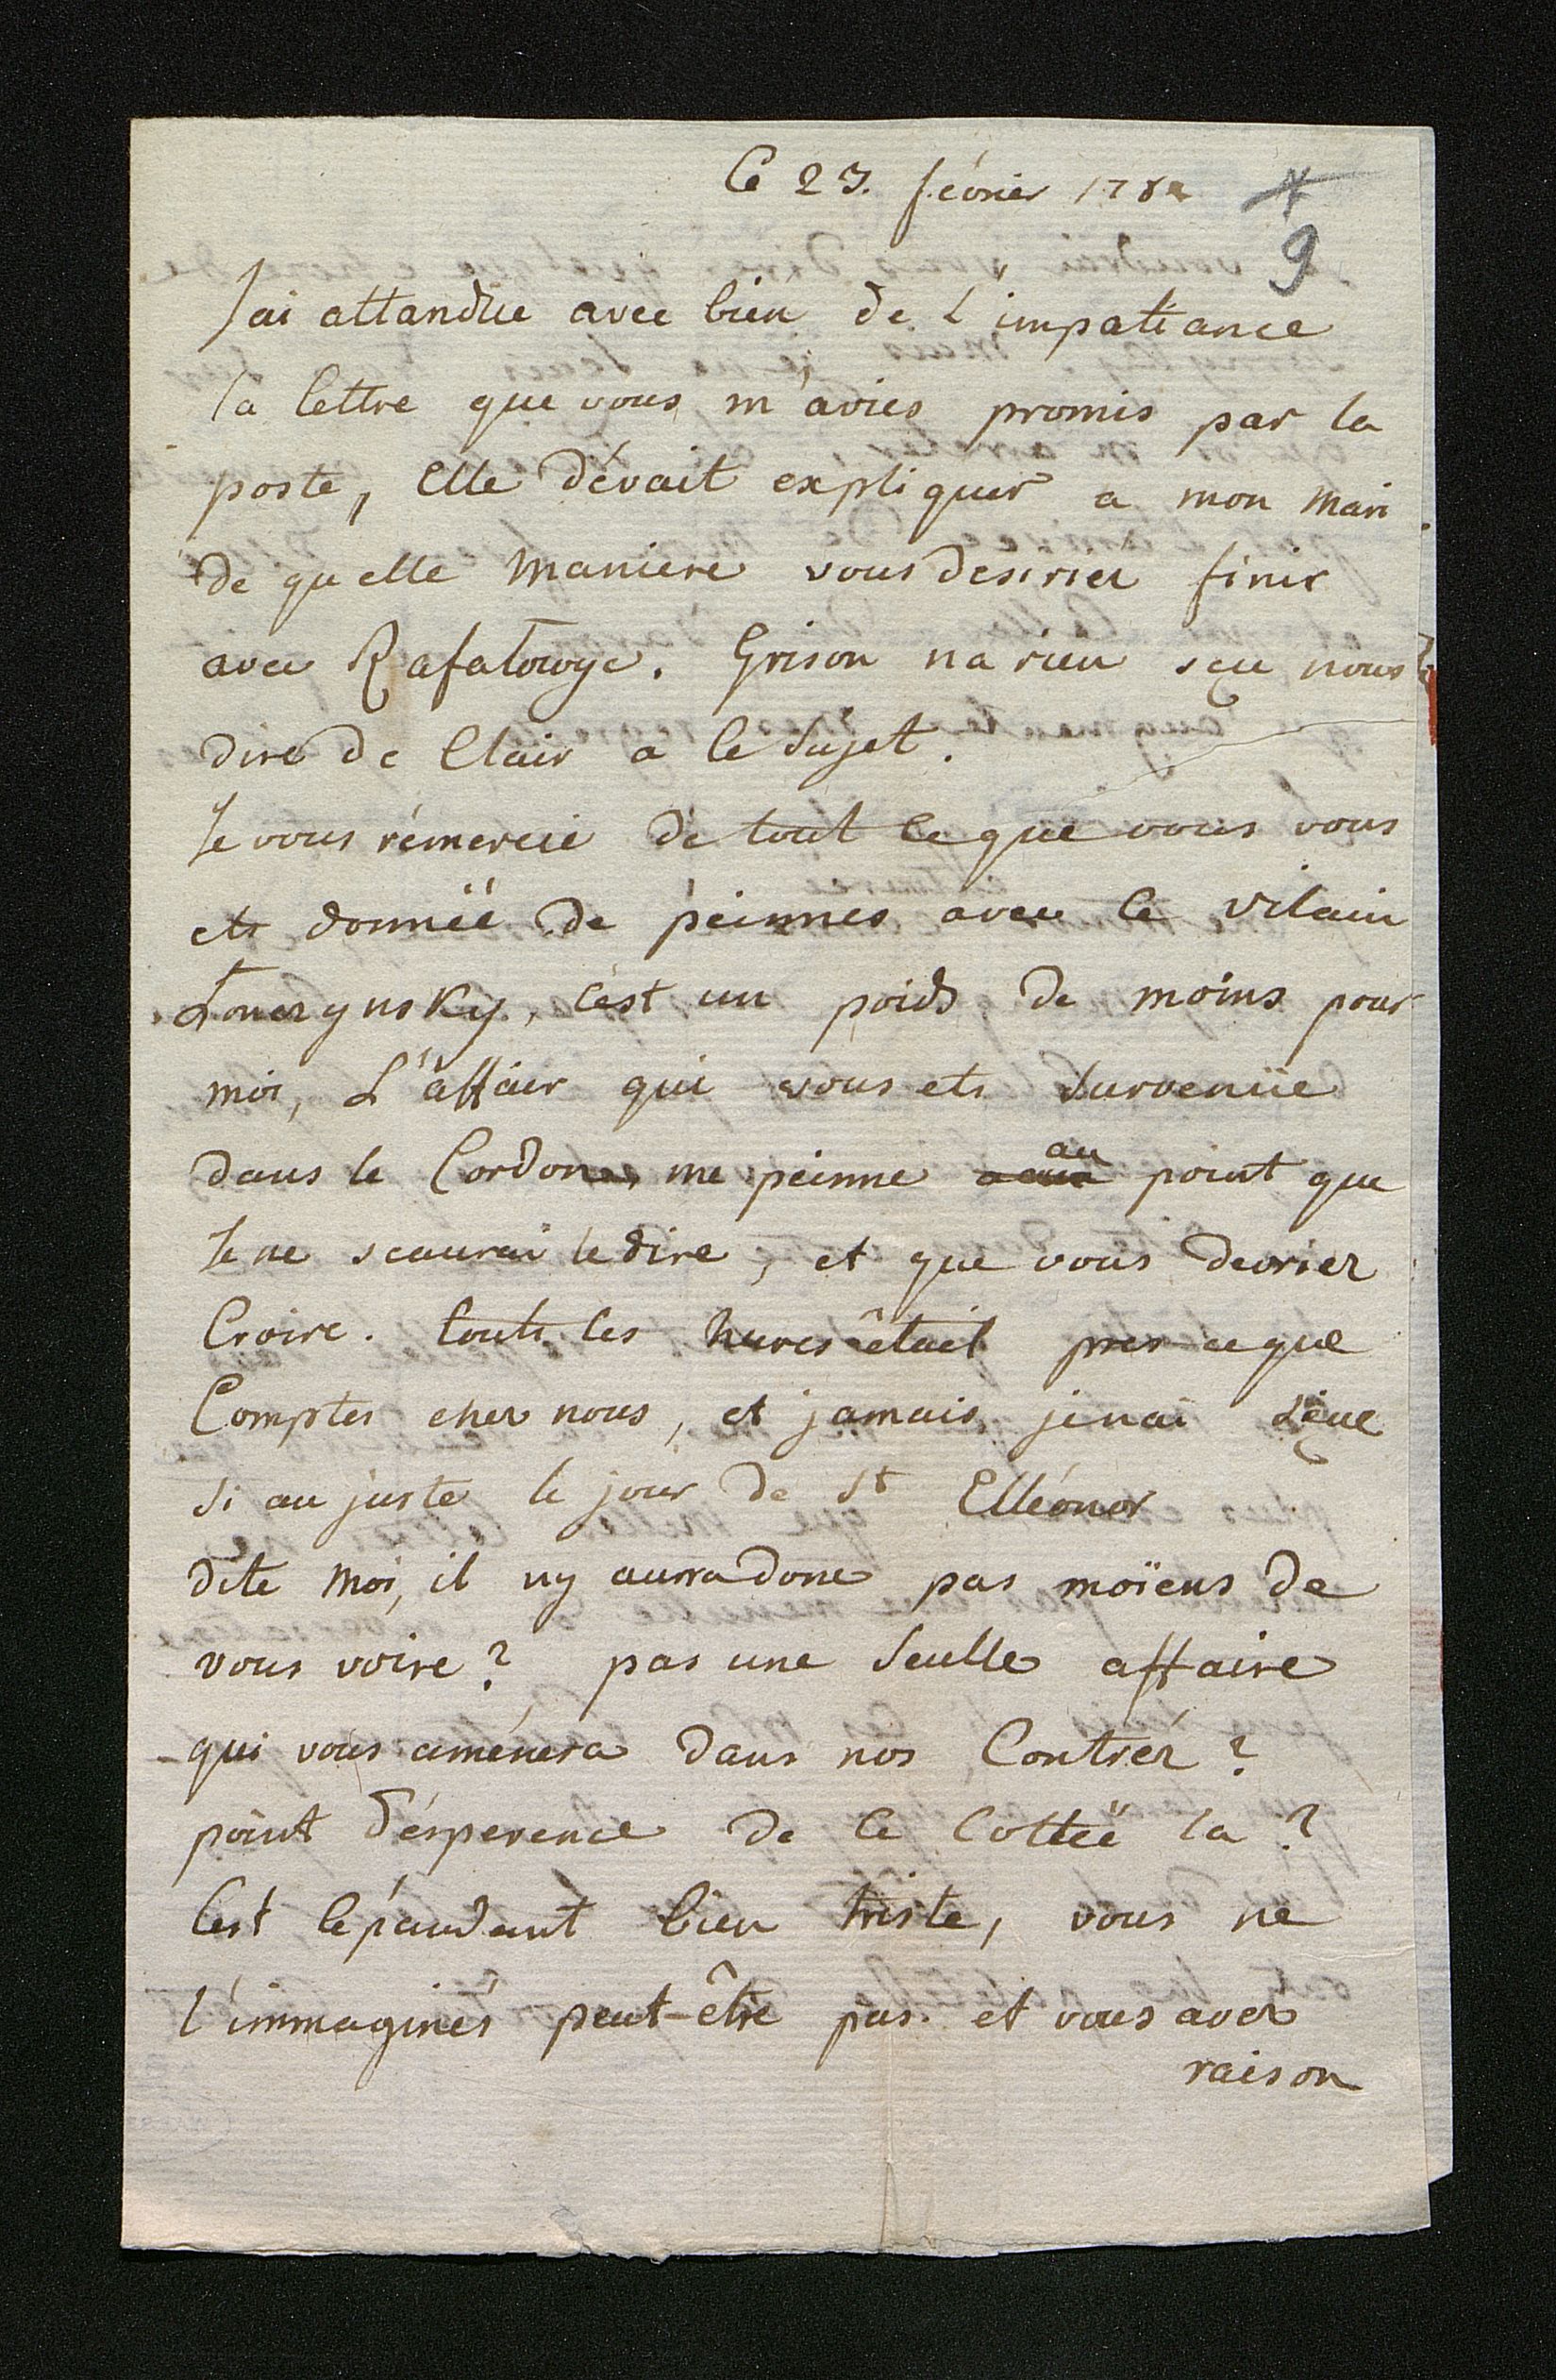 Ce 23. févrie 178
9
Jai attandüe avec bien de L'impatiance
la lettre que vous m'aviés promis par la
poste, elle dévait expliquer a mon mari
de quelle maniere vous desiriez finir
avec Rafatowyc. Grison na rien sçu nous
dire de Clair a ce sujet.
Je vous rémercie de tout ce que vous vous
ets donnéë de peinnes avec le vilain
Lonczynsky, c'est un poids de moins pour
moi, L'affair qui vous ets survenüe
dans le Cordon, me peinne au point que
Je ne scaurai le dire, et que vous devriez
Croire. touts les hures étaít presceque
Comptes chez nous, et jamais jenai sçue
si au juste le jour de St Elléonor
dite moi, il ny aurra donc pas moïens de
vous voire? pas une seulle affaire
qui vous aménera dans nos Contréz?
point d'ésperence de ce Cottéë la?
Cest cépandant bien triste, vous ne
l'immaginés peut-être pas. et vous avez
raison